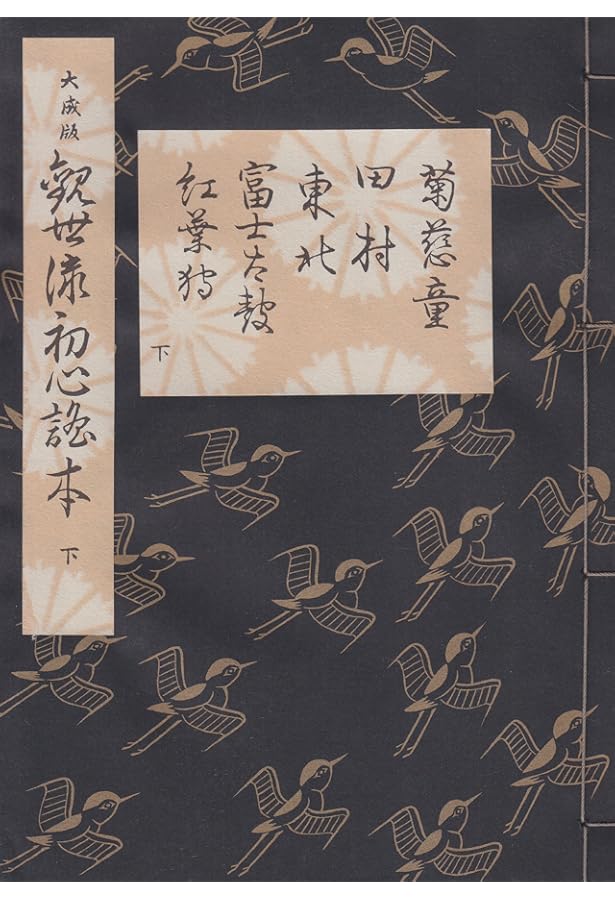 大成版
觀世流初心謡本 下
菊慈童
田村
東北
富士太鼓
紅葉狩
下